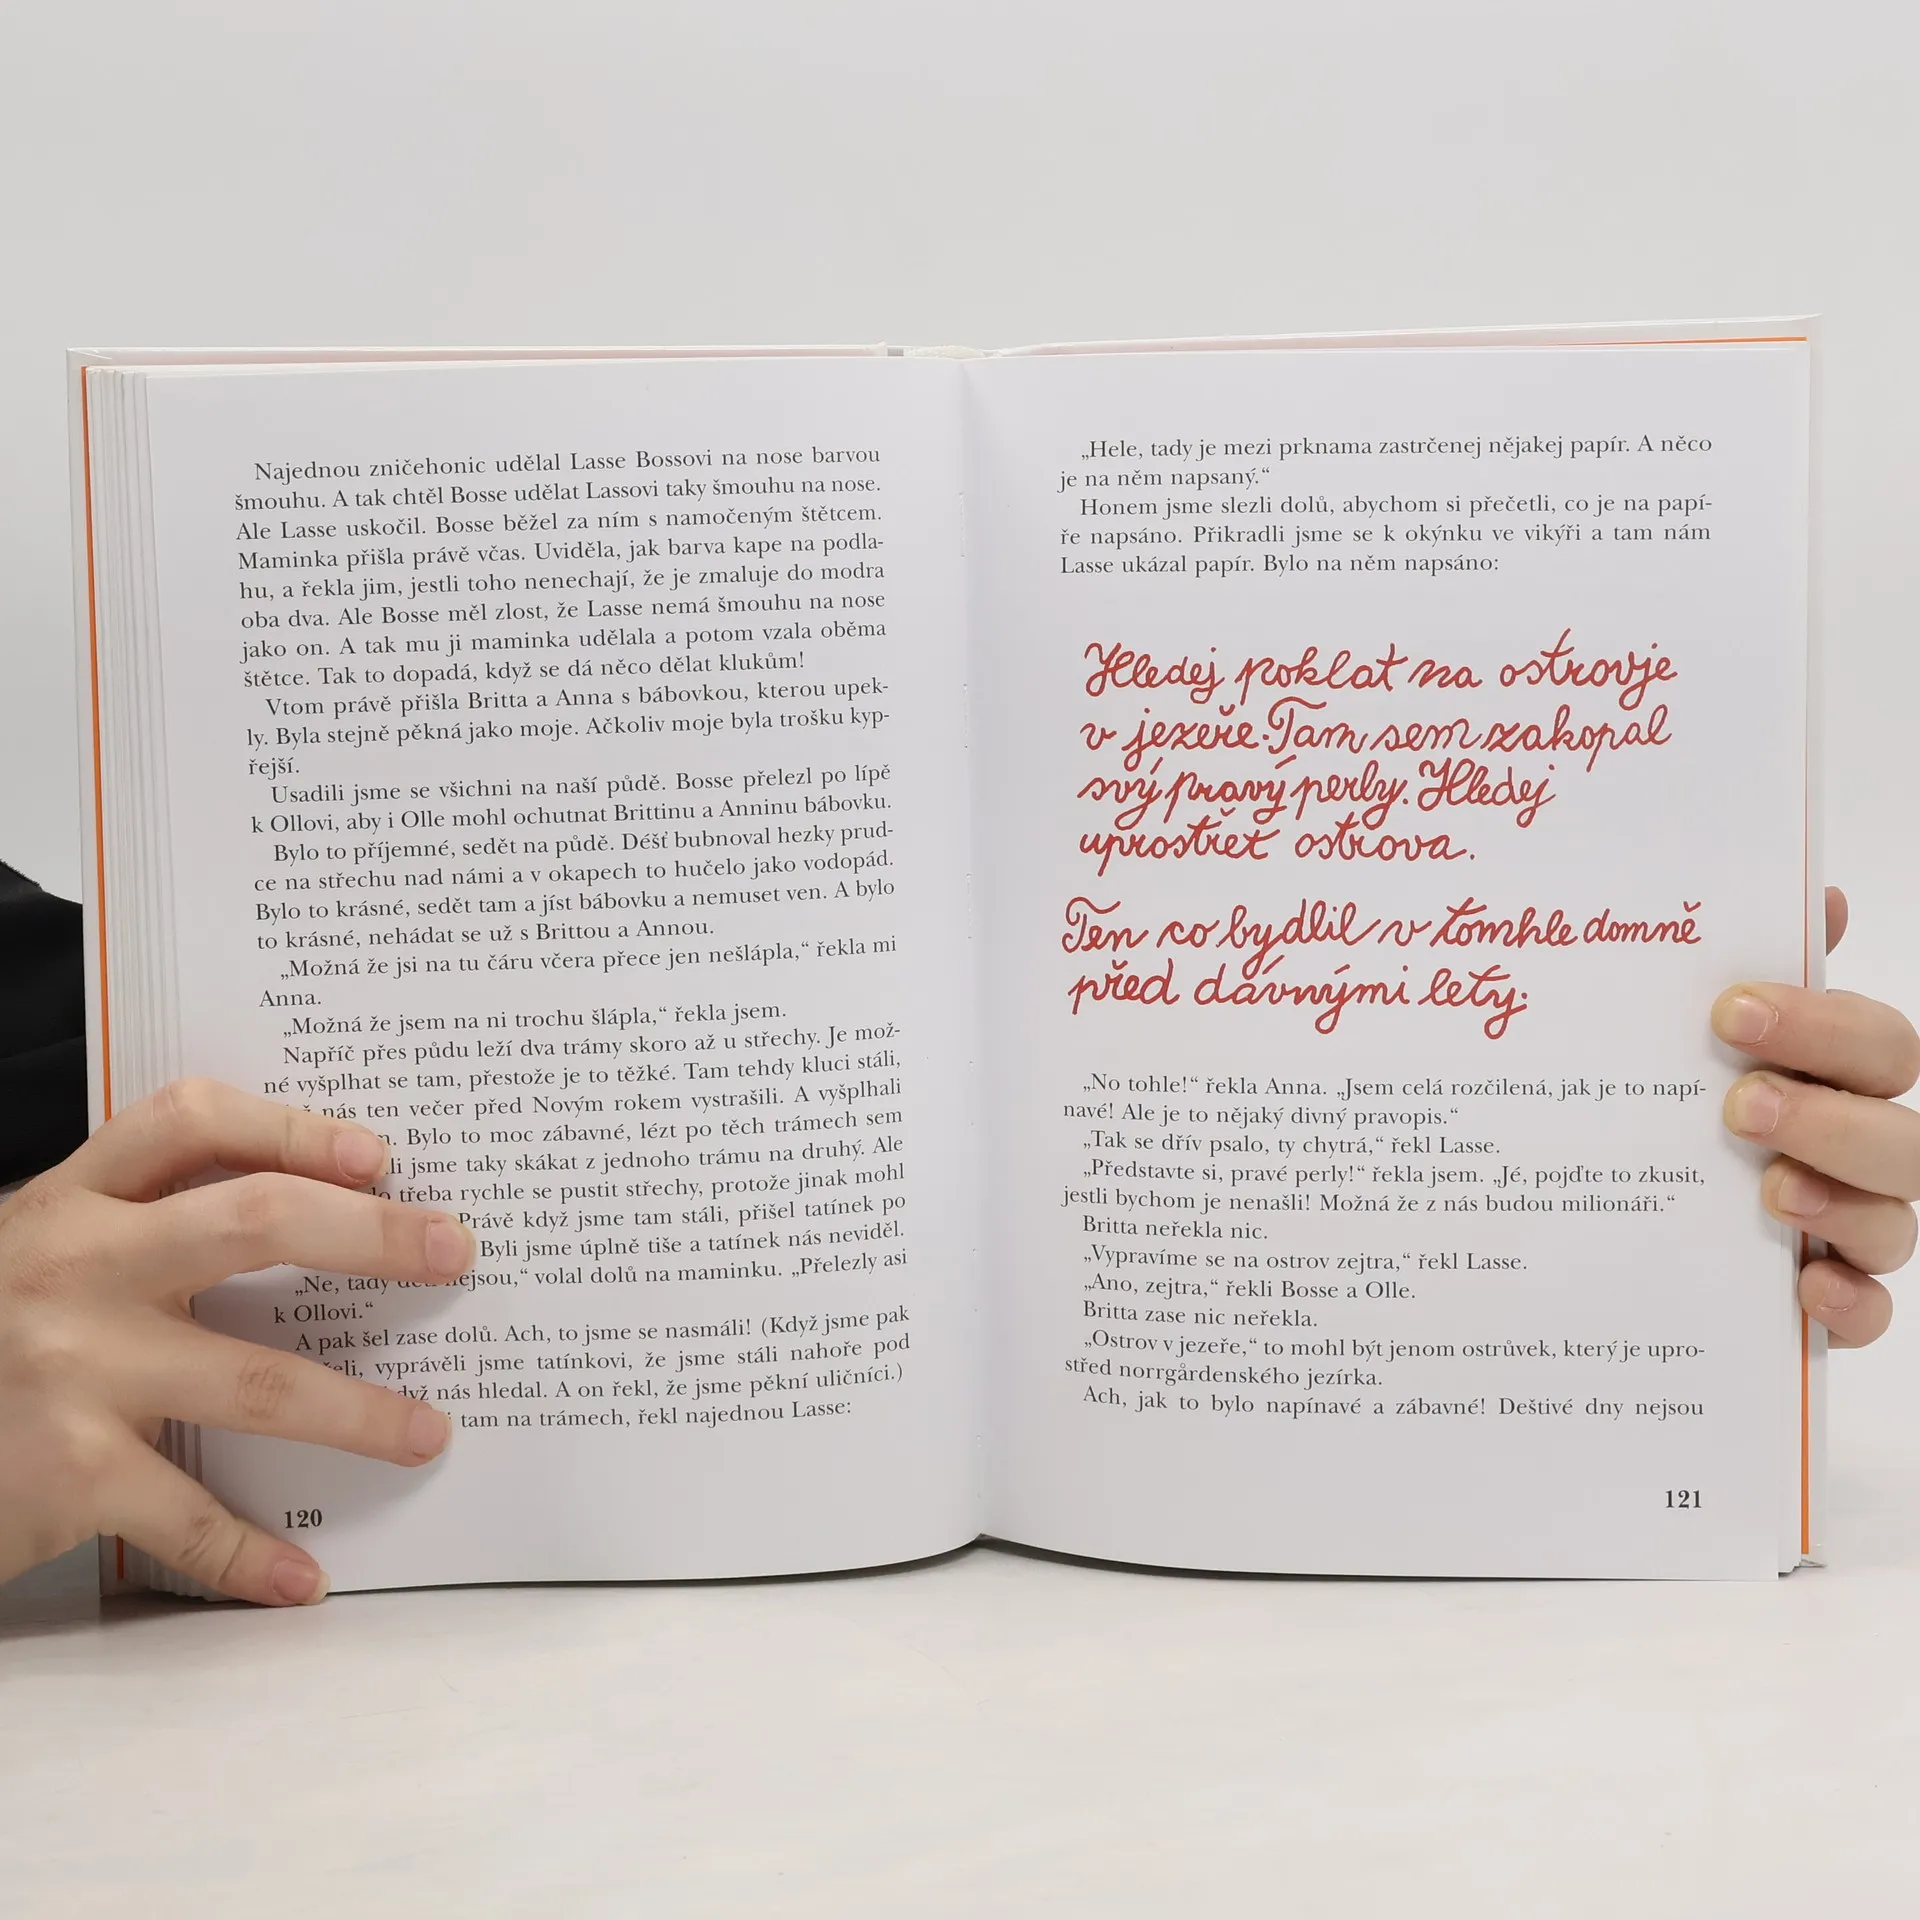 Najednou zničehonic udělal Lasse Bossovi na nose barvou
šmouhu. A tak chtěl Bosse udělat Lassovi taky šmouhu na nose.
Ale Lasse uskočil. Bosse běžel za ním s namočeným štětcem.
Maminka přišla právě včas. Uviděla, jak barva kape na podla-
hu, a řekla jim, jestli toho nenechají, že je zmaluje do modra
oba dva. Ale Bosse měl zlost, že Lasse nemá šmouhu na nose
jako on. A tak mu ji maminka udělala a potom vzala oběma
štětce. Tak to dopadá, když se dá něco dělat klukům!
Vtom právě přišla Britta a Anna s bábovkou, kterou upek-
ly. Byla stejně pěkná jako moje. Ačkoliv moje byla trošku kyp-
řejší.
Usadili jsme se všichni na naší půdě. Bosse přelezl po lípě
k Ollovi, aby i Olle mohl ochutnat Brittinu a Anninu bábovku.
Bylo to příjemné, sedět na půdě. Déšť bubnoval hezky prud-
ce na střechu nad námi a v okapech to hučelo jako vodopád.
Bylo to krásné, sedět tam a jíst bábovku a nemuset ven. A bylo
to krásné, nehádat se už s Brittou a Annou.
„Možná že jsi na tu čáru včera přece jen nešlápla,“ řekla mi
Anna.
„Možná že jsem na ni trochu šlápla,“ řekla jsem.
Napříč přes půdu leží dva trámy skoro až u střechy. Je mož-
né vyšplhat se tam, přestože je to těžké. Tam tehdy kluci stáli,
nás ten večer před Novým rokem vystrašili. A vyšplhali
Bylo to moc zábavné, lézt po těch trámech sem
jsme taky skákat z jednoho trámu na druhý. Ale
třeba rychle se pustit střechy, protože jinak mohl
Právě když jsme tam stáli, přišel tatínek po
Byli jsme úplně tiše a tatínek nás neviděl.
„Ne, tady nejsou,“ volal dolů na maminku. „Přelezly asi
k Ollovi.“
A pak šel zase dolů. Ach, to jsme se nasmáli! (Když jsme pak
vyprávěli jsme tatínkovi, že jsme stáli nahoře pod
když nás hledal. A on řekl, že jsme pěkní uličníci.)
tam na trámech, řekl najednou Lasse:
120
„Hele, tady je mezi prknama zastrčenej nějakej papír. A něco
je na něm napsaný.“
Honem jsme slezli dolů, abychom si přečetli, co je na papí-
ře napsáno. Přikradli jsme se k okýnku ve vikýři a tam nám
Lasse ukázal papír. Bylo na něm napsáno:
Hledej poklat na ostrovje
v jezeře. Tam sem zakopal
svý pravý perly. Hledej
uprostřet ostrova.
Ten co bydlil v tomhle domně
před dávnými lety.
„No tohle!“ řekla Anna. „Jsem celá rozčilená, jak je to napí-
navé! Ale je to nějaký divný pravopis.“
„Tak se dřív psalo, ty chytrá,“ řekl Lasse.
„Představte si, pravé perly!“ řekla jsem. „Jé, pojďte to zkusit,
jestli bychom je nenašli! Možná že z nás budou milionáři.“
Britta neřekla nic.
„Vypravíme se na ostrov zejtra,“ řekl Lasse.
„Ano, zejtra,“ řekli Bosse a Olle.
Britta zase nic neřekla.
„Ostrov v jezeře,“ to mohl být jenom ostrůvek, který je upro-
střed norrgårdenského jezírka.
Ach, jak to bylo napínavé a zábavné! Deštivé dny nejsou
121